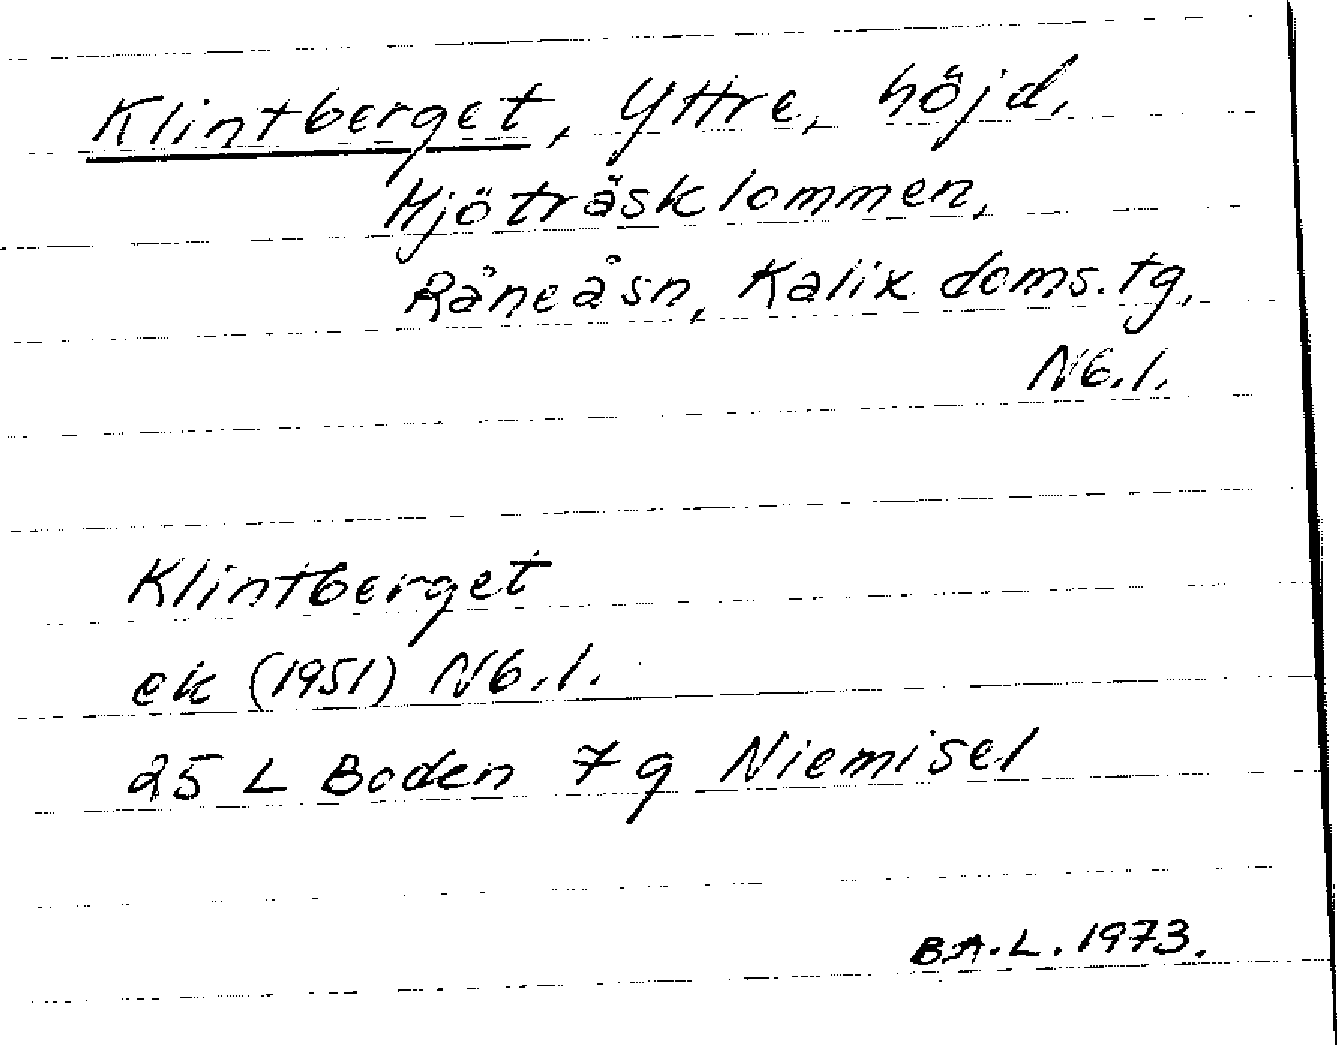 Klintberget, Yttre, höjd,
Mjöträsklommen,
Råneå sn, Kalix doms. tg,
Nb. l.
Klintberget
ek (1951) Nb. l.
25 L Boden 7 g Niemisel
B.A.L. 1973.